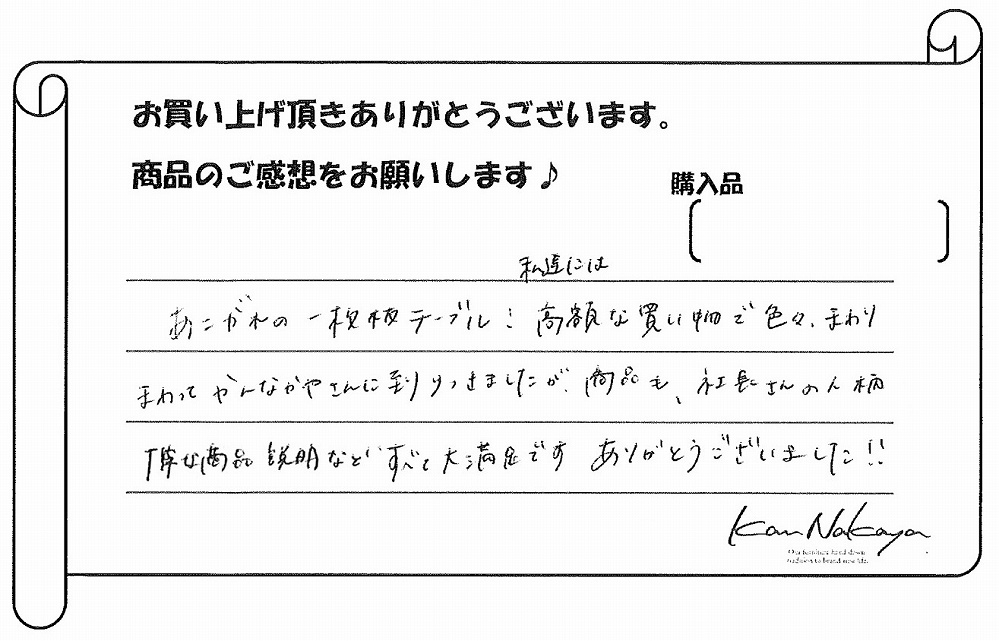 お買い上げ頂きありがとうございます。
商品のご感想をお願いします♪
購入品
私達には
あこがれの一枚板テーブル! 高額な買い物で色々、まわり
まわってかんなかやさんに到りつきましたが、商品も、社長さんの人柄
丁寧な商品説明などすべて大満足です ありがとうございました!!
KanNakaya
Our furniture hand down
tradition to brand new life.